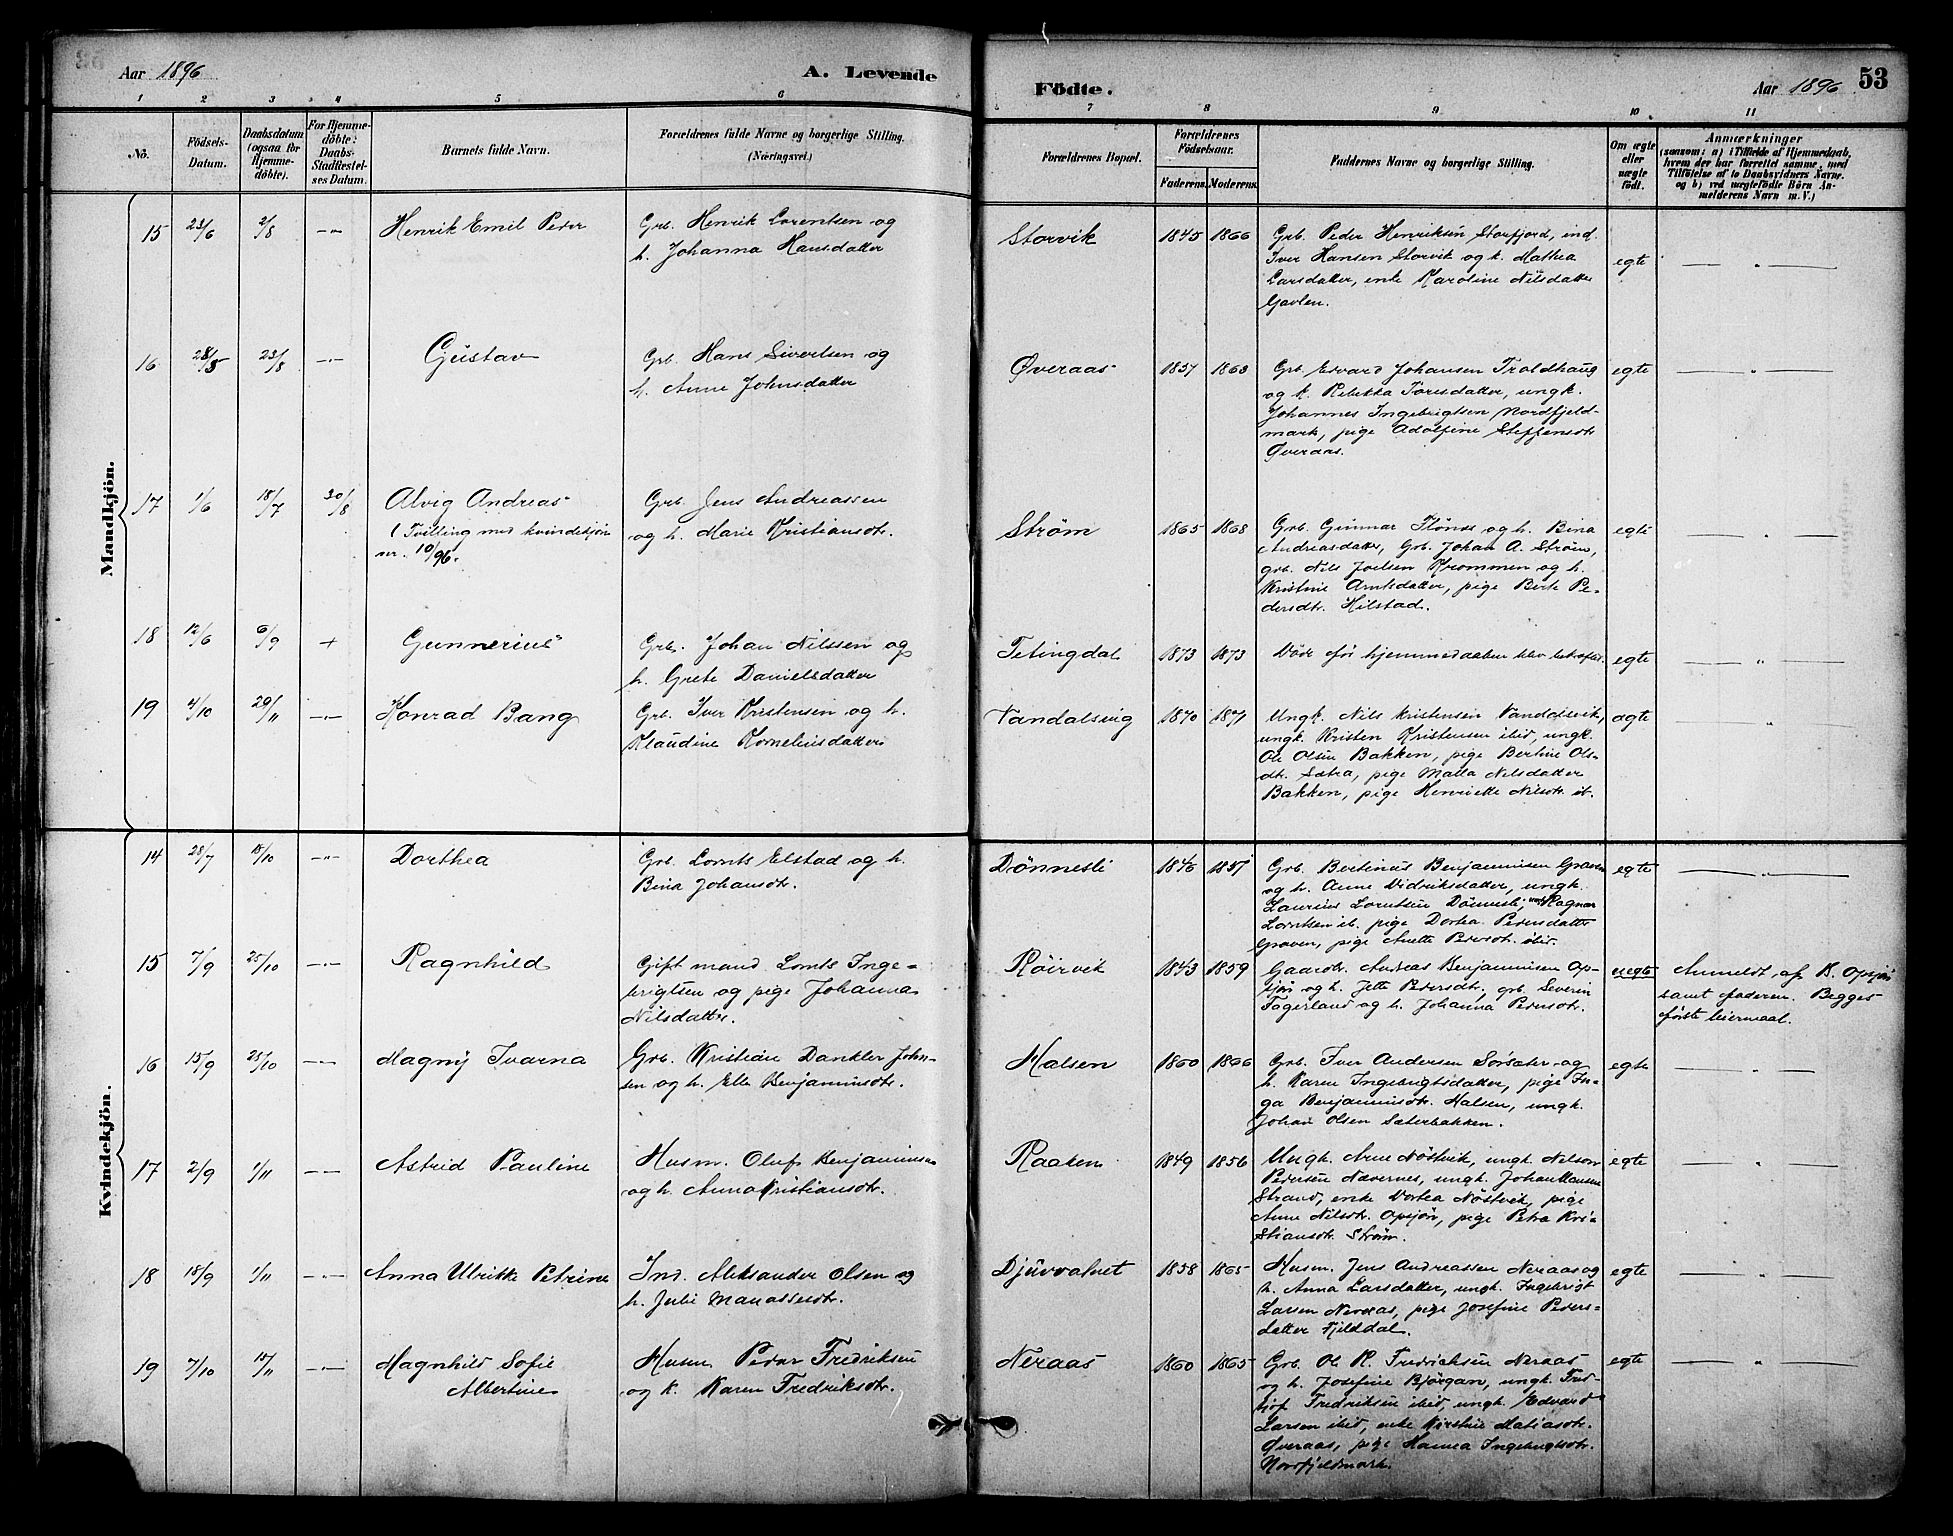 Aar 1896
A. Levende
Födte.
Aar 1896
53
1 2 3 4 5 6 7 8 9 10 11
No.
Födsels-
Datum.
Daabsdatum
(ogsaa for
Hjemme-
döbte).
For Hjemme-
döbte:
Daabs-
Stadfæstel-
ses Datum.
Barnets fulde Navn.
Forældrenes fulde Navne og borgerlige Stilling.
(Næringsvei.)
Forældrenes Bopæl.
Forældrenes
Födselsaar.
Faderens. Moderens.
Faddernes Navne og borgerlige Stilling.
Om ægte
eller
uægte
födt.
Anmærkninger
(saasom: a) i Tilfælde af Hjemmedaab,
hvem der har forrettet samme, med
Tilföielse af to Daabsvidners Navne.
og b) ved uægtefödte Börn An-
melderens Navn m. V.)
Mandkjön.
15 23/6 2/8 Henrik Emil Peder
Grb. Henrik Lorentsen og
h. Johanna Hansdatter
Storvik 1845 1866
Grb. Peder Henriksen Storfjord, ind.
Iver Hansen Storvik og h. Mathea
Larsdatter, enke Karoline Nilsdatter
Gavlen.
egte
16 28/5 23/8 Gustav
Grb. Hans Sivertsen og
h. Anne Johnsdatter
Øveraas 1857 1863
Grb. Edvard Johansen Troldhaug
og h. Rebekka Toresdatter, ungk.
Johannes Ingebrigtsen Nordfjeld-
mark, pige Adolfine Steffensdtr
Øveraas.
egte
17 1/6 18/7 30/8 Alvig Andreas
(Tvilling med kvindekjøn
nr. 10/96.
Grb. Jens Andreassen
og h. Marie Kristiansdtr.
Strøm 1865 1868
Grb. Gunnar Flönes og h. Bina
Andreasdatter, Grb. Johan A. Strøm,
grb. Nils Joelsen Krommen og h.
Kristine Arntsdatter, pige Berte Pe-
dersdtr. Hilstad.
egte
18 12/6 6/9 + Gunnerius
Grb. Johan Nilssen og
h. Grete Danielsdatter
Tetingdal 1873 1873
Döde før hjemmedaaben blev bekræftet.
egte
19 4/10 29/11 Konrad Bang
Grb. Iver Kristensen og h.
Klaudine Korneliusdatter
Vandalsvig 1870 1871
Ungk. Nils Kristensen Vandalsvik,
ungk. Kristen Kristensen ibid, ungk.
Ole Olsen Bakken, pige Bertine Ols-
dtr. Sætra, pige Malla Nilsdatter
Bakken, pige Henriette Nilsdtr. ib.
ægte
Kvindekjön.
14 28/7 15/10 Dorthea
Grb. Lornts Elstad og h.
Bina Johansdtr.
Dönnesli 1846 1857
Grb. Bertinus Benjaminsen Graven
og h. Anne Didriksdatter, ungk.
Laurius Lorntsen Dönnesli, Ragna
Lorntsen ib. pige Dortea Pedersdatter
Graven, pige Anette Pedersdtr. ibid.
egte
15 7/9 25/10 Ragnhild
Gift mand Lornts Inge-
brigtsen og pige Johanna
Nilsdatter.
Röirvik 1843 1859
Gaardb. Andreas Benjaminsen Op-
sjøn og h. Jette Pedersdtr, grb. Severin
Fagerland og h. Johanna Pedersdtr.
uegte
Anmeldt af B. Opsjøn
samt faderen. Begges
første leiermaal.
16 15/9 25/10 Magny Ivarna
Grb. Kristian Dankler John-
sen og h. Elle Benjaminsdtr.
Halsen 1860 1866
Grb. Iver Andersen Sorsæter og
h. Karen Ingebrigtsdatter, pige In-
ga Benjaminsdtr. Halsen, ungk.
Johan Olsen Sæterbakken.
egte
17 2/9 1/11 Astrid Pauline
Husm. Oluf Benjaminsen
og h. Anna Kristiansdtr.
Raaken 1849 1856
Ungk. Arne Nöstvik, ungk. Nelson
Pedersen Nævernes, ungk. Johan Hansen
Strand, enke Dortea Nöstvik, pige
Anne Nilsdtr. Opsjön, pige Petra Kri-
stiansdtr. Strøm.
egte
18 18/9 1/11 Anna Ulrikke Petrine
Ind. Aleksander Olsen og
h. Julie Manassesdtr.
Djuvvatnet 1858 1865
Husm. Jens Andreassen Neraas og
h. Anna Larsdatter, ungk. Ingebrigt
Larsen Neraas, pige Josefine Peders-
datter Fjelddal.
egte
19 7/10 15/11 Magnhild Sofie
Albertine
Husm. Peder Fredriksen
og h. Karen Fredriksdtr.
Neraas 1860 1865
Grb. Ole K. Fredriksen Neraas
og h. Josefine Bjørgan, ungk. Fred-
tjof Fredriksen ibid, ungk. Edvard
Larsen ibid, enke Kirstine Matiasdtr.
Øveraas, pige Hanna Ingebrigtsdtr.
Nordfjeldmark.
egte